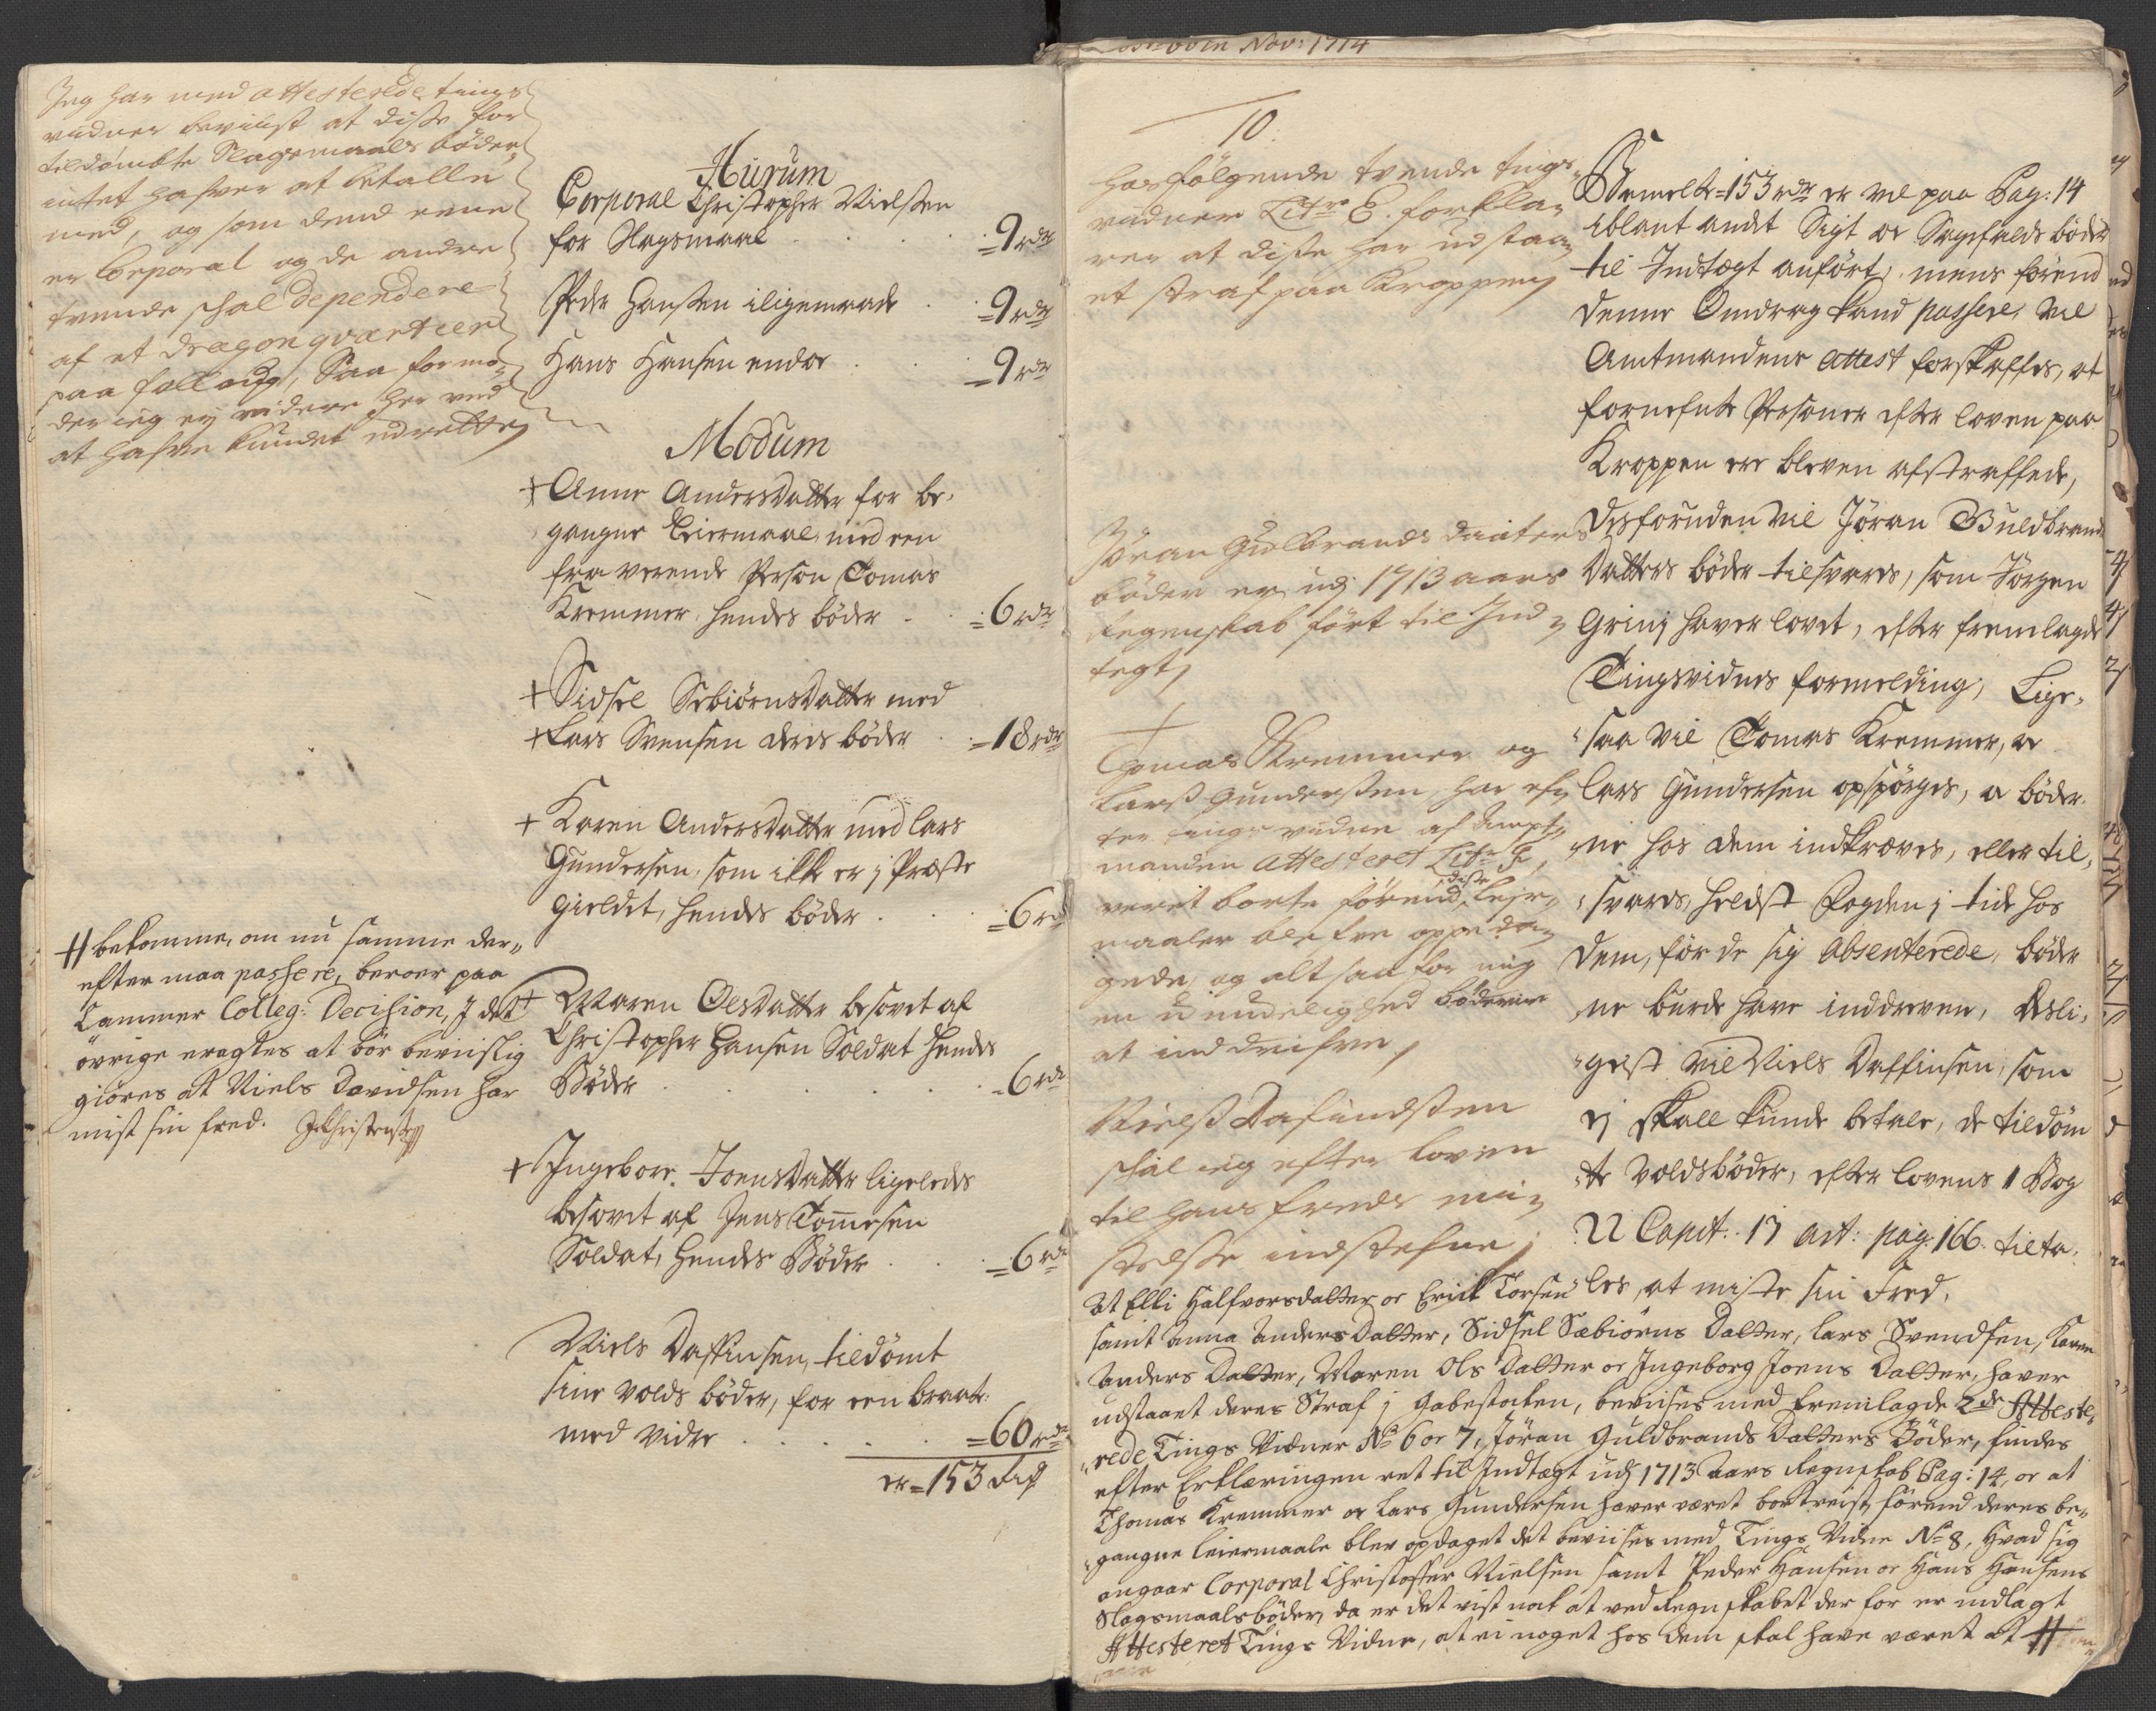 Jeg har med attesterede tings
vidner beviist at disse for
tildømbte Slagsmaals bøder
intet hafver at betalle
med, og som dend eene
er Corporal og de andre
tvende schal dependere
af et dragon qvarteer
paa
der ieg ej videre her ved
at hafve kundet udrette
Hurum
Corporal Christopher Nielssen
for Slagsmaal . . . =9 rdr
Peder Hanssen iligemaade . . =9 rdr
Hans Hansen endor . . =9 rdr
Modum
+ Anne Andersdatter for be-
gangne Leiermaal, med een
fraverende Person Tomas
Kremmer, hendes bøder . . =6 rdr
+ Sidsel Sebiørnsdatter med
+ Lars Svensen deris bøder . . =18 rdr
+ Karen Andersdatter med Lars
Gundersen, som ikke er j Præste
gieldet, hendes bøder . . . =6 rdr
+ Maren Olsdatter besovet af
Christopher Hansen Soldat hendes
Bøder . . . . =6 rdr
+ Ingebor Joensdatter ligeledes
besovet af Jens Tommesen
Soldat, hendes Bøder . . =6 rdr
Niels Daffinsen, tildømt
sine volds bøder, for een
med vidre . . . . =60 rdr
er =153 rdr
# bekomme, om nu samme der,,
efter maa passere, beroer paa
Cammer Colleg: Decision, J det
øvrige eragtes at bør beviislig
giøres at Niels Davidsen har
mist sin fred. JChristensen
Nov: 1714
10.
Hosfølgende tvende tings-
vidner Litr. E. forkla-
rer at disse har udstaa-
et straf paa Kroppen
Jøran Gulbrands daaters
bøder er udj 1713 aars
Regenskab ført til Ind-
tegt
+
Thomas Kremmer og
Larss Gunderssen, har ef-
ter tings vidne af Ampt-
manden attesteret Litr. F,
veret borte førend disse leje-
maaler blefve oppeda-
gede, og alt saa for mig
en uimuelighed bøderne
at inddrifve
Nielss Dafindssen
schal ieg efter Loven
til hans freds mi-
stelsse indstefne
Bemelte =153 rdr er vel paa Pag: 14
iblant andet Sigt oc Sagefalds bøder
til Indtægt anført, mens førend
denne Omdrag kand passere, vil
Amtmandens attest forskaffes, at
fornefnte Personer efter loven paa
Kroppen ere bleven afstraffede,
desforuden vil Jøran Guldbrands
Datters bøder tilsvares, som Jørgen
Grinj haver lovet, efter fremlagde
Tingsvidnes formelding, Lige-
saa vil Tomas Kremmer, oc
Lars Gundersen opspørges, oc bøder-
ne hos dem indkræves, eller til-
svares, heldst Fogden j tide hos
dem, før de sig absenterede, bøder
ne burde have inddreven, desli-
gest vil Niels Daffinsen, som
ej skall kunde betale, de tildøm
te voldsbøder, efter lovens 1 Bog
22 Capit. 17 art: pag: 166. tilta-
les, at miste sin Fred.
At Elli Halfvorsdatter oc Erick Torsen
samt Anna Anders Datter, Sidsel Sæbiørns Datter, Lars Svendsen, Karen
Anders Datter, Maren Ols Datter oc Ingeborg Joens Datter, haver
udstaaet deres Straf j Gabestoken, beviises med fremlagde 2de Atteste,
rede Tings Vidner No 6 oc 7, Jøran Guldbrands Datters Bøder, findes
efter Erklæringen ret til Indtægt udj 1713 Aars Regnskab Pag: 14, oc at
Thomas Kremmer oc Lars Gundersen haver været bortreist, førend deres be-
gangne leiermaale blev opdaget det beviises med Tings Vidne No 8, Hvad sig
angaar Corporal Christoffer Nielsen samt Peder Hansen oc Hans Hansens
Slagsmaalsbøder, da er det vist nok at ved Regnskabet der for er indlagt
Attesteret Tings Vidne, at ei noget hos dem skal have været at #